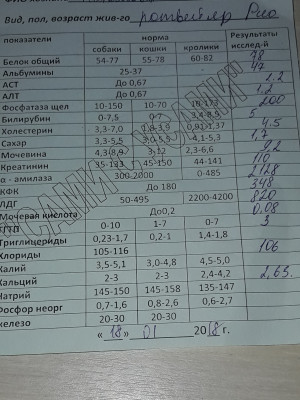 Вид, пол, возраст жив-го ротвейлер Рио
показатели норма Результаты исслед-й
собаки кошки кролики
Белок общий 54-77 55-78 60-82 78
Альбумины 25-37 47
АСТ До 0,67 1.2
АЛТ До 0,67 1,2
Фосфатаза щел 10-150 10-70 200
Билирубин 0-7,5 0-7 3,4-8,5 5
Холестерин 3,3-7,0 0,91-1,37 4.5
Сахар 3,3-5,5 3,0-5,5 4,1-5,3 1,7
Мочевина 4,3-8,9 3-12 2,3-6,6
Креатинин 35-133 45-150 44-141 110
α - амилаза 300-2000 0-485 2128
КФК До 180 348
ЛДГ 50-495 2200-4200 820
Мочевая кислота До0,2 0.08
ГГТП 0-10 1-7 0-7 3
Триглицериды 0,23-1,7 0,2-1 1,4-1,8
Хлориды 105-116 106
Калий 3,5-5,1 3,0-4,8 4,5-5,0
Кальций 2-3 2-3 2,4-4,2 2,63
Натрий 145-150 145-158 135-147
Фосфор неорг 0,7-1,6 0,8-2 0,6-2,7
железо 20-30 20-30
« 18 » 01 2018 г.